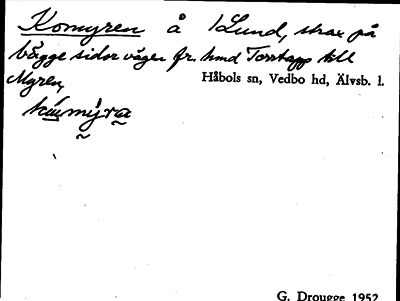 Komyren å Lund, strax på
bägge sidor vägen fr. hmd Torrtapp till
Myren,
Håbols sn, Vedbo hd, Älvsb. l.
G. Drougge 1952